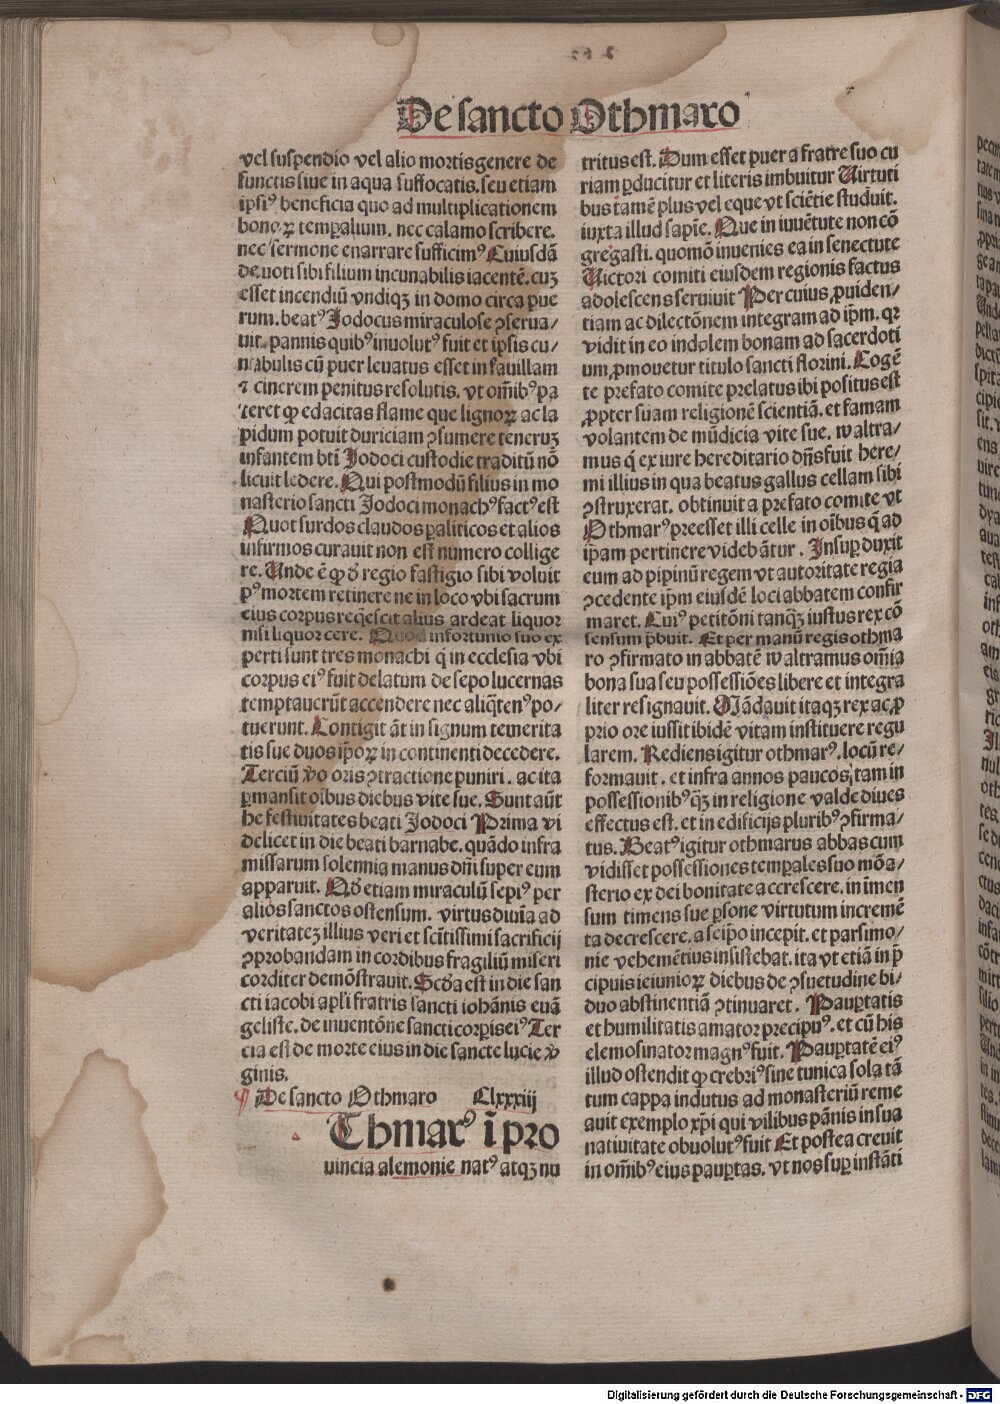 De sancto Othmaro
vel suspendio vel alio mortis genere de
functis siue in aqua suffocatis. seu etiam
ipsiꝰ beneficia quo ad multiplicationem
bonoꝝ temꝑalium. nec calamo scribere.
nec sermone enarrare sufficimꝰ Cuiusdā
deuoti sibi filium incunabilis iacentē. cuꝫ
esset incendiū vndiqꝫ in domo circa pue
rum. beatꝰ Jodocus miraculose ꝯserua/
uit. pannis quibꝰ inuolutꝰ fuit et ipsis cu/
nabulis cū puer leuatus esset in fauillam
⁊ cinerem penitus resolutis. vt om̄ibꝰ pa
teret ꝙ edacitas flame que lignoꝝ ac la
pidum potuit duriciam ꝯsumere teneruꝫ
infantem bti Jodoci custodie traditū nō
licuit ledere. Qui postmodū filius in mo
nasterio sancti Jodoci monachꝰ factꝰ est
Quot surdos claudos ꝑaliticos et alios
infirmos curauit non est numero collige
re. Unde ē ꝙ de regio fastigio sibi voluit
pꝰ mortem retinere ne in loco vbi sacrum
eius corpus reqͥescit alius ardeat liquor
nisi liquor cere. Quod infortunio suo ex
perti sunt tres monachi qͥ in ecclesia vbi
corpus eiꝰ fuit delatum de sepo lucernas
temptauerūt accendere nec aliqͣtenꝰ po/
tuerunt. Contigit āt in signum temerita
tis sue duos ip̄oꝝ in continenti decedere.
Terciū ꝟo oris ꝯtractione puniri. ac ita
ꝑmansit oībus diebus vite sue. Sunt aūt
he festiuitates beati Jodoci Prima vi
delicet in die beati barnabe. quādo infra
missarum solennia manus dn̄i super eum
apparuit. Qd̓ etiam miraculū sepiꝰ per
alios sanctos ostensum. virtus diuīa ad
veritateꝫ illius veri et sc̄tissimi sacrificij
ꝯprobandam in cordibus fragiliū miseri
corditer demōstrauit. Scd̓a est in die san
cti iacobi apl̓i fratris sancti iohānis euā
geliste. de inuentōne sancti corꝑis eiꝰ Ter
cia est de morte eius in die sancte lucie ꝟ
ginis.
¶ De sancto Othmaro Clxxxiij
Thmarꝰ ī pro
uincia alemonie natꝰ atqꝫ nu
tritus est. Dum esset puer a fratre suo cu
riam ꝑducitur et literis imbuitur Uirtuti
bus tamē plus vel eque vt sciētie studuit.
iuxta illud sapīe. Que in iuuētute non cō
gregasti. quomō inuenies ea in senectute
Uictori comiti eiusdem regionis factus
adolescens seruiuit Per cuius ꝓuiden/
tiam ac dilectōnem integram ad ip̄m. qꝛ
vidit in eo indolem bonam ad sacerdoti
um ꝓmouetur titulo sancti florini. Cogē
te prefato comite prelatus ibi positus est
ꝓpter suam religionē scientiā. et famam
volantem de mūdicia vite sue. waltra/
mus qͥ ex iure hereditario dn̄s fuit here/
mi illius in qua beatus gallus cellam sibi
ꝯstruxerat. obtinuit a prefato comite vt
Othmarꝰ preesset illi celle in oībus q̄ ad
ip̄am pertinere videbātur. Insuꝑ duxit
eum ad pipinū regem vt autoritate regia
ꝯcedente ip̄m eiusdē loci abbatem confir
maret. Cuiꝰ petitōni tanqꝫ iustus rex cō
sensum p̄buit. Et per manū regis othma
ro ꝯfirmato in abbatē waltramus om̄ia
bona sua seu possessiōes libere et integra
liter resignauit. Mādauit itaqꝫ rex ac ꝓ
prio ore iussit ibidē vitam instituere regu
larem. Rediens igitur othmarꝰ. locū re/
formauit. et infra annos paucos, tam in
possessionibꝰ qͣꝫ in religione valde diues
effectus est. et in edificijs pluribꝰ ꝯfirma/
tus. Beatꝰ igitur othmarus abbas cum
vidisset possessiones temꝑales suo mōa/
sterio ex dei bonitate accrescere. in īmen
sum timens sue ꝑsone virtutum incremē
ta decrescere. a seip̄o incepit. et parsimo/
nie vehemētius insistebat. ita vt etiā in p̄
cipuis ieiunioꝝ diebus de ꝯsuetudine bi/
duo abstinentiā ꝯtinuaret. Pauꝑtatis
et humilitatis amator precipuꝰ. et cū his
elemosinator magnꝰ fuit. Pauꝑtatē eiꝰ
illud ostendit ꝙ crebriꝰ sine tunica sola tā
tum cappa indutus ad monasteriū reme
auit exemplo xp̄i qui vilibus pānis in sua
natiuitate obuolutꝰ fuit Et postea creuit
in om̄ibꝰ eius pauꝑtas. vt nos suꝑ instāti
Digitalisierung gefördert durch die Deutsche Forschungsgemeinschaft - DFG